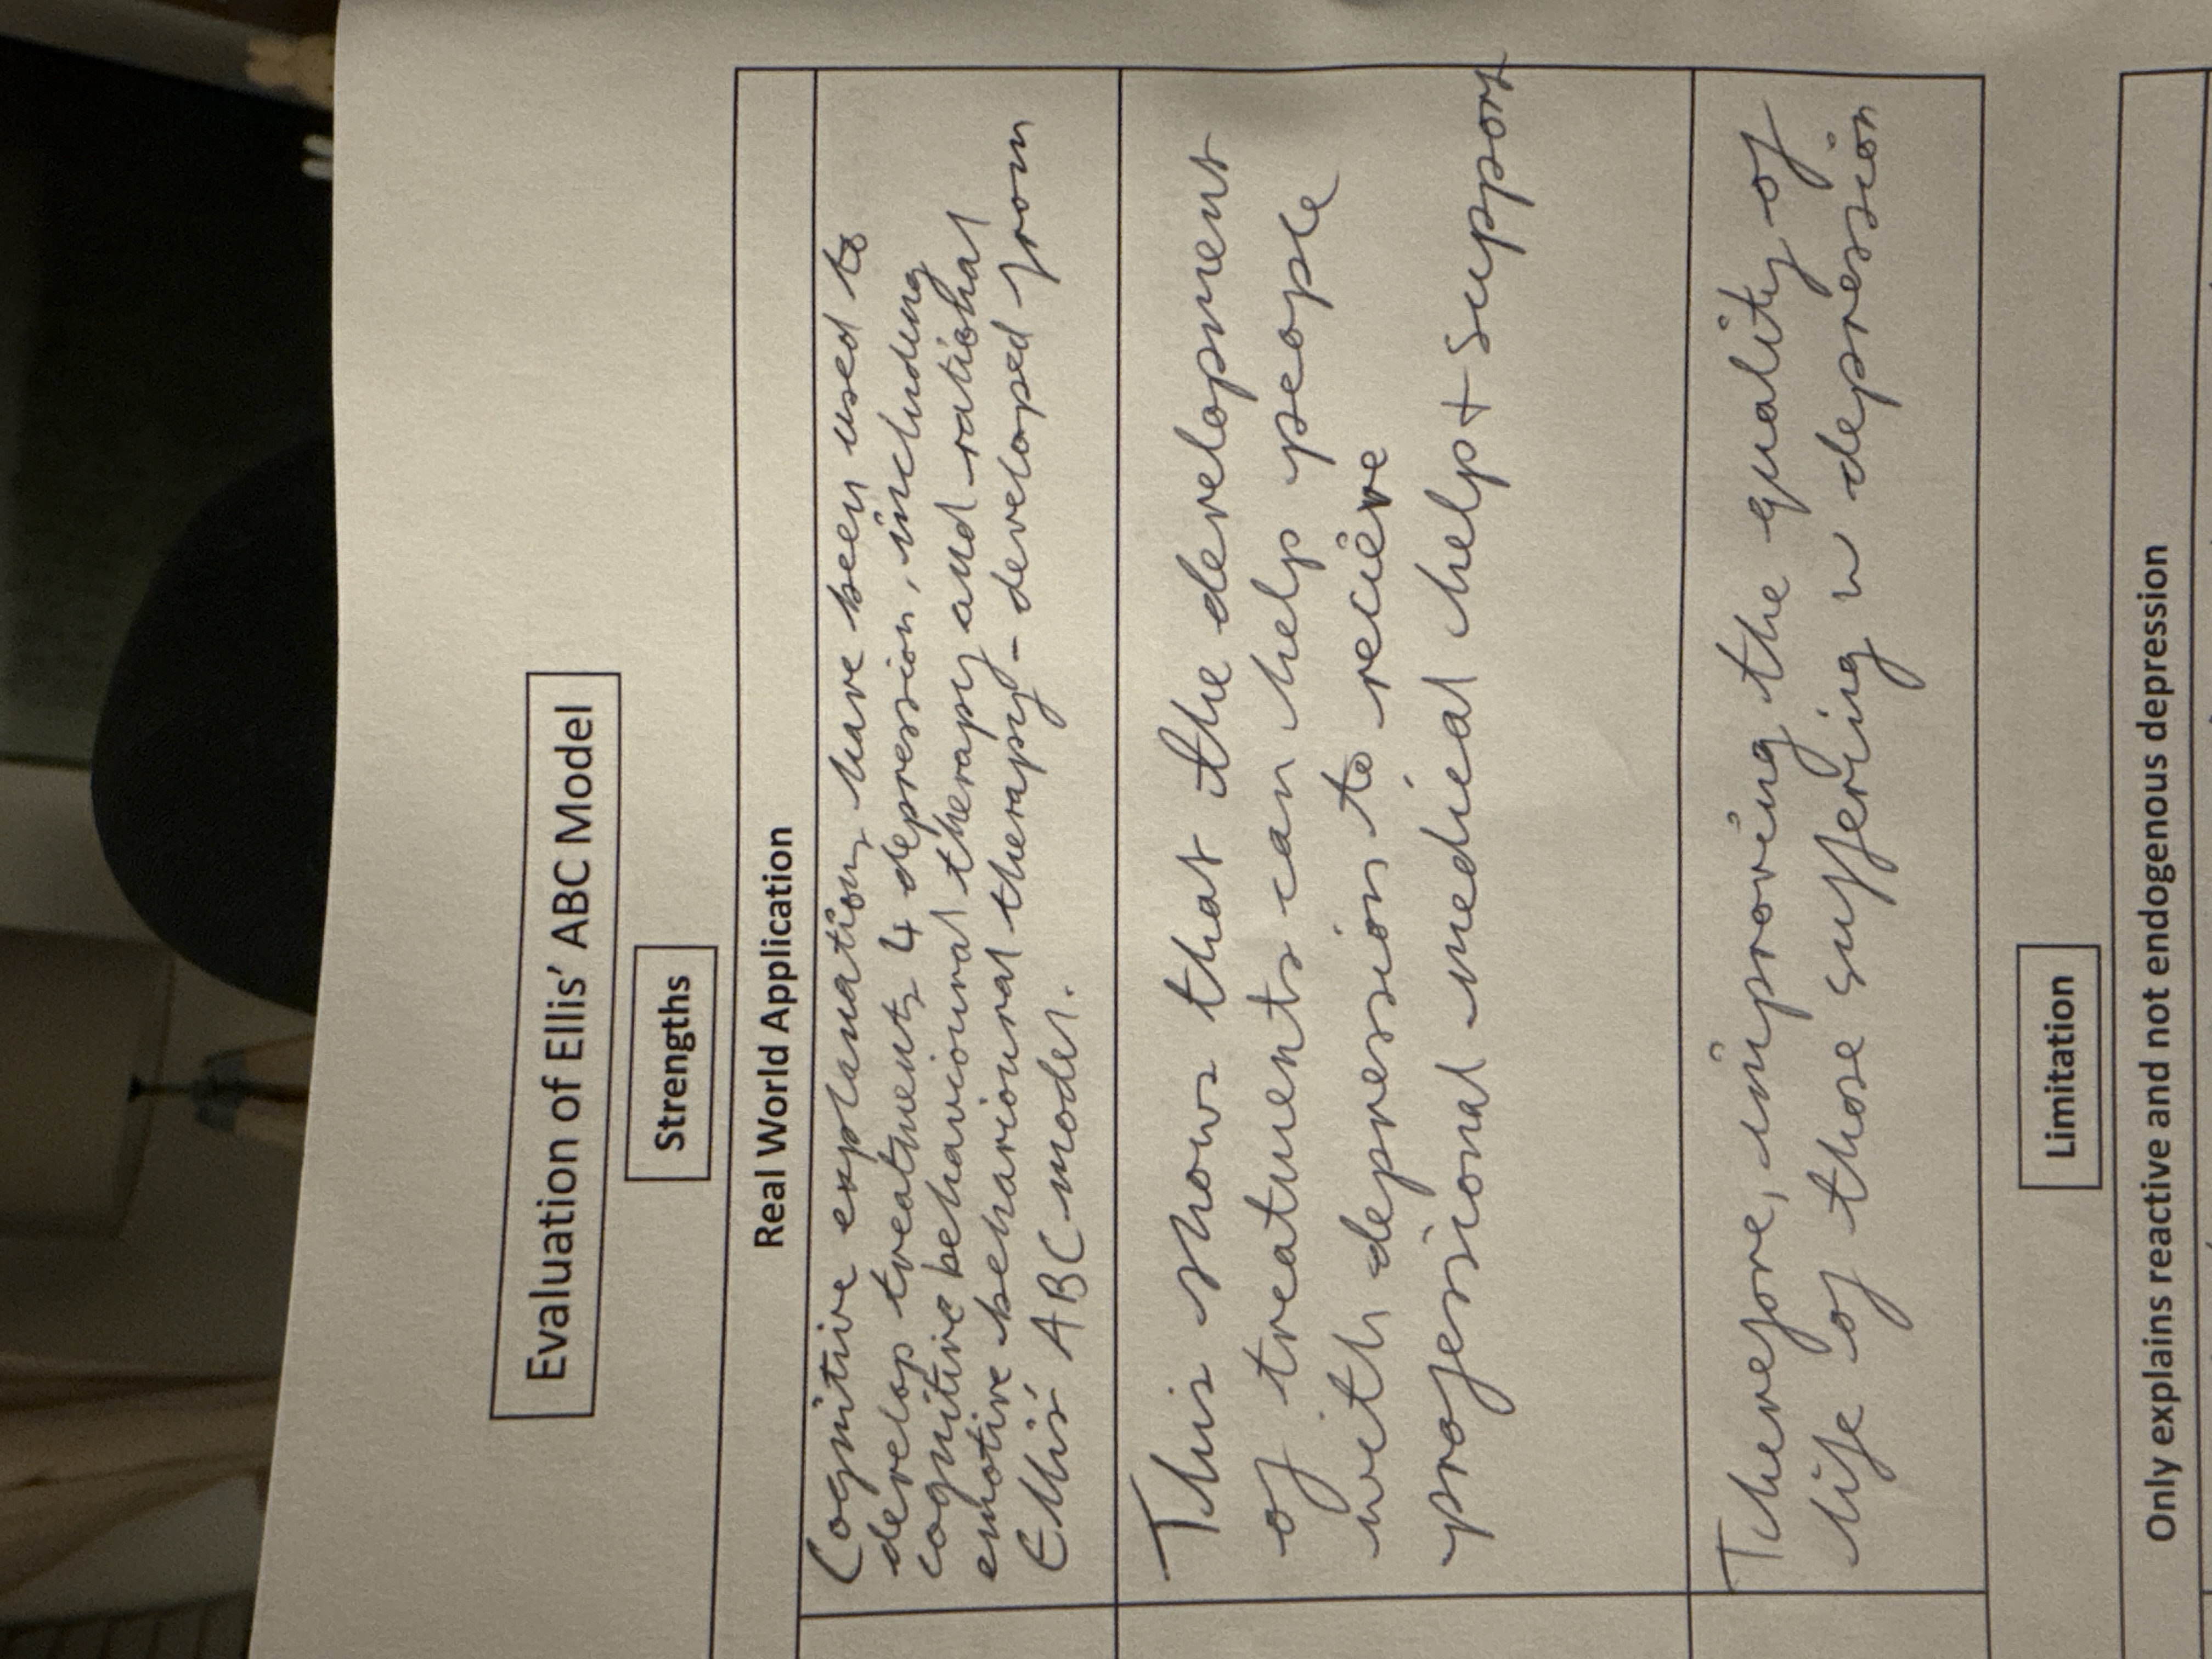 Evaluation of Ellis' ABC Model
Strengths
Real World Application
Cognitive explanations have been used to
develop treatments 4 depression, including
cognitive behavioural therapy and rational
emotive behavioural therapy - developed from
Ellis' ABC model.
This shows that the development
of treatments can help people
with depression to recieve
professional medical help + support
Therefore, improving the quality of
life of those suffering w depression
Limitation
Only explains reactive and not endogenous depression